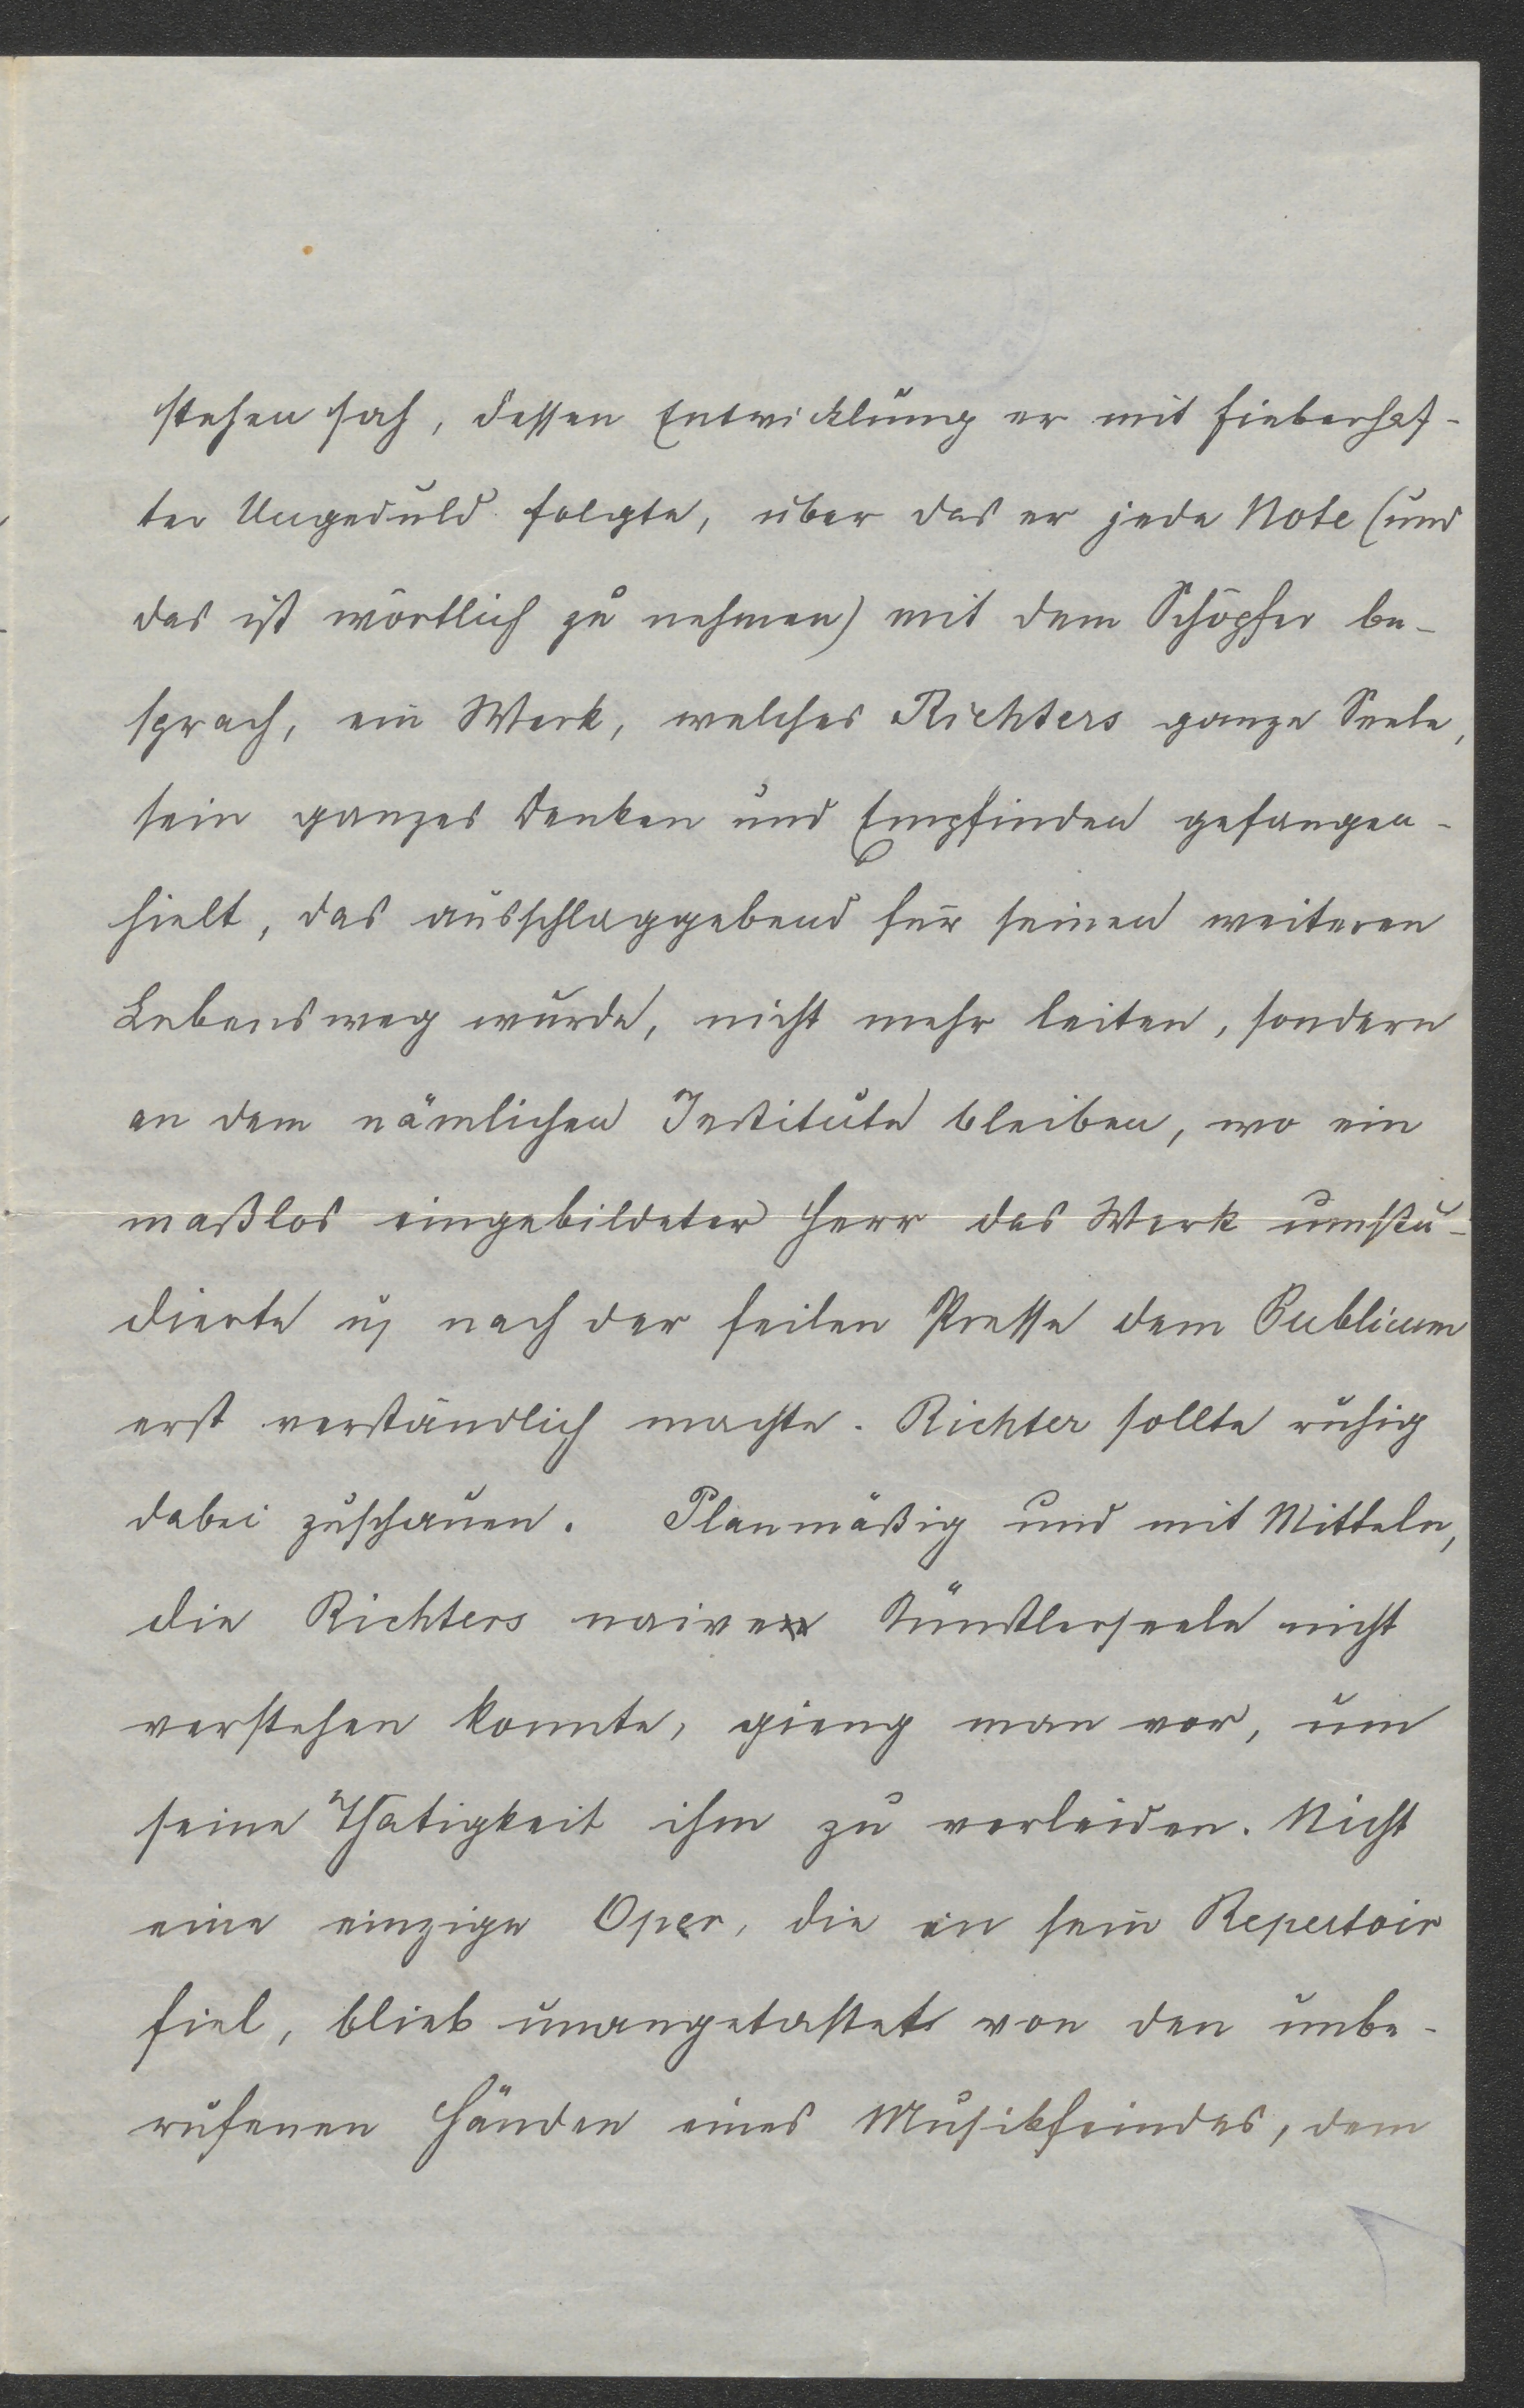 stehen sah, dessen Entwicklung er mit fieberhaf-
ter Ungeduld folgte, über das er jede Note (und
das ist wörtlich zu nehmen) mit dem Schöpfer be-
sprach, ein Werk, welches Richters ganze Seele,
sein ganzes Denken und Empfinden gefangen-
hielt, das ausschlaggebend für seinen weiteren
Lebensweg wurde, nicht mehr leiten, sondern
an dem nämlichen Institute bleiben, wo ein
maßlos eingebildeter Herr das Werk umstu-
dierte u. nach der feilen Presse dem Publicum
erst verständlich machte. Richter sollte ruhig
dabei zuschauen. Planmäßig und mit Mitteln,
die Richters naive Künstlerseele nicht
verstehen konnte, gieng man vor, um
seine Thätigkeit ihm zu verleiden. Nicht
eine einzige Oper, die in sein Repertoir
fiel, blieb unangetastet von den unbe-
rufenen Händen eines Musikfeindes, dem